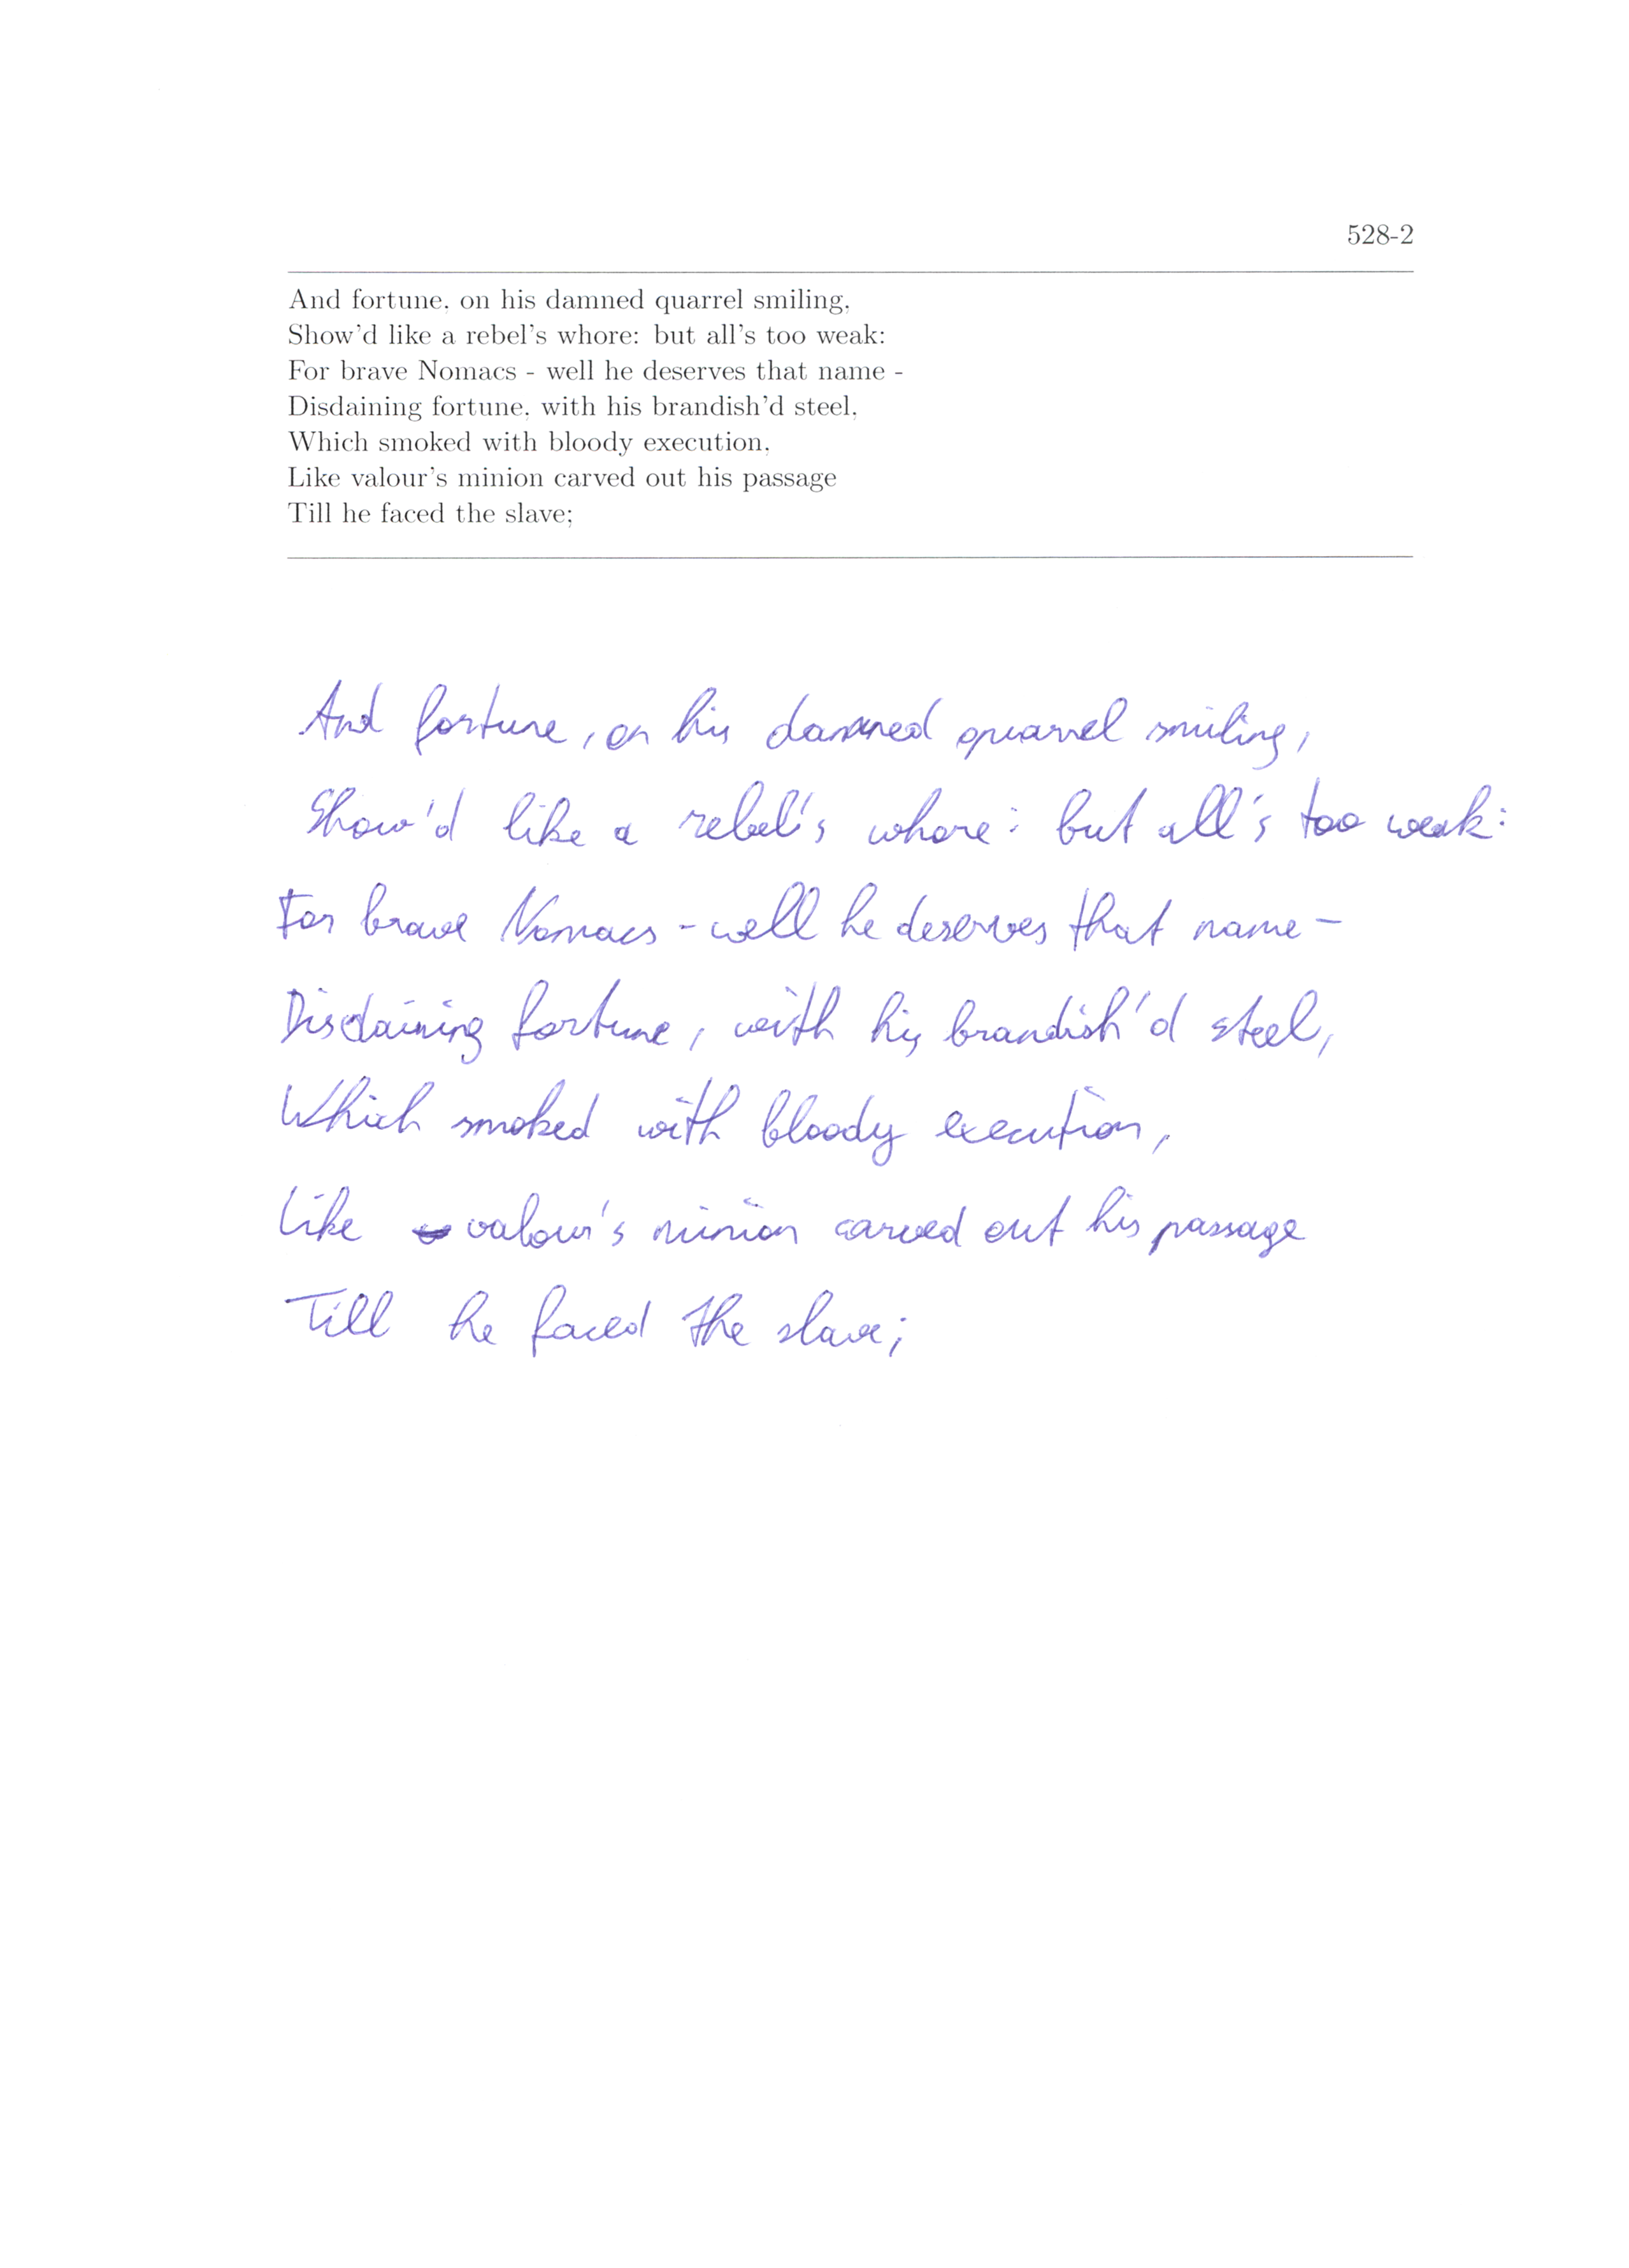 528-2
And fortune, on his damned quarrel smiling,
Show'd like a rebel's whore: but all's too weak:
For brave Nomacs - well he deserves that name -
Disdaining fortune, with his brandish'd steel,
Which smoked with bloody execution,
Like valour's minion carved out his passage
Till he faced the slave;
And fortune, on his damned quarrel smiling,
Show'd like a rebel's whore: but all's too weak:
For brave Nomacs - well he deserves that name -
Disdaining fortune, with his brandish'd steel,
Which smoked with bloody execution,
Like valour's minion carved out his passage
Till he faced the slave;